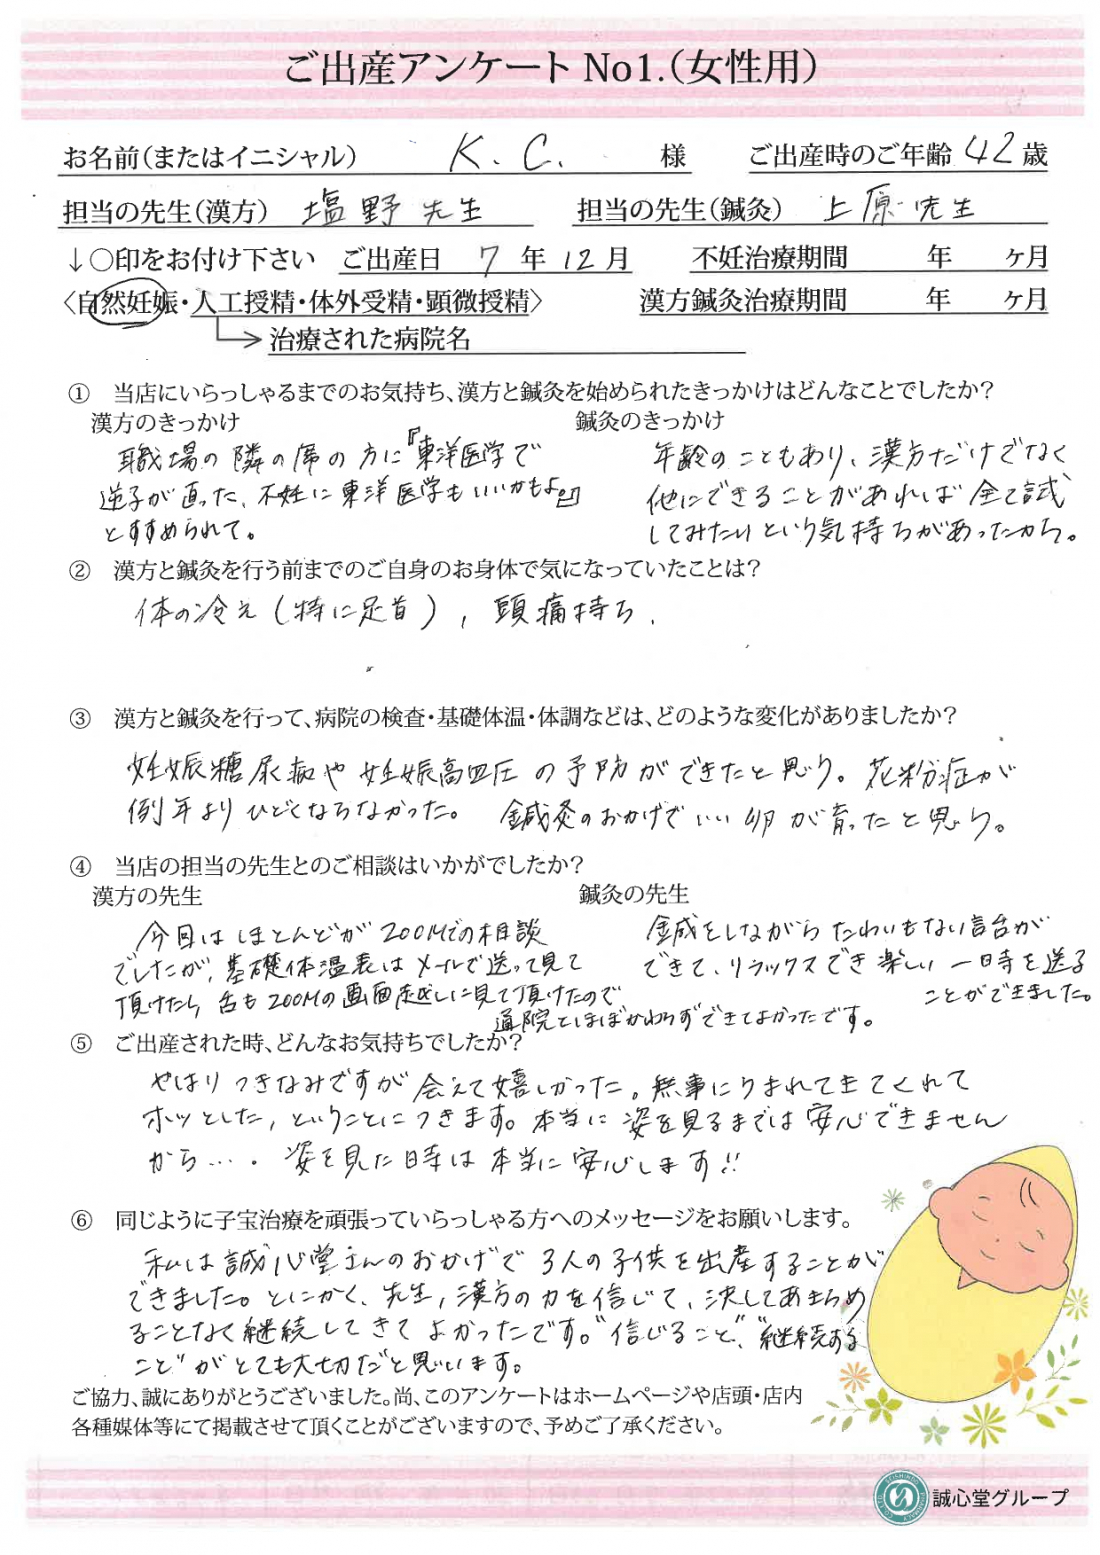 ご出産アンケート No1.(女性用)
お名前(またはイニシャル) K. C. 様 ご出産時のご年齢 42 歳
担当の先生(漢方) 塩野先生 担当の先生(鍼灸) 上原先生
↓○印をお付け下さい ご出産日 7 年 12 月 不妊治療期間 年 ヶ月
〈自然妊娠・人工授精・体外受精・顕微授精〉 漢方鍼灸治療期間 年 ヶ月
治療された病院名
① 当店にいらっしゃるまでのお気持ち、漢方と鍼灸を始められたきっかけはどんなことでしたか?
漢方のきっかけ
職場の隣の席の方に『東洋医学で
逆子が直った、不妊に東洋医学もいいかもよ』
とすすめられて。
鍼灸のきっかけ
年齢のこともあり、漢方だけでなく
他にできることがあれば全て試
してみたいという気持ちがあったから。
② 漢方と鍼灸を行う前までのご自身のお身体で気になっていたことは?
体の冷え(特に足首)、頭痛持ち、
③ 漢方と鍼灸を行って、病院の検査・基礎体温・体調などは、どのような変化がありましたか?
妊娠糖尿病や妊娠高血圧の予防ができたと思う。花粉症が
例年よりひどくならなかった。 鍼灸のおかげでいい卵が育ったと思う。
④ 当店の担当の先生とのご相談はいかがでしたか?
漢方の先生
今回はほとんどがZOOMでの相談
でしたが、基礎体温表はメールで送って見て
頂けたし、舌もZOOMの画面越しに見て頂けたので
通院とほぼかわらずできてよかったです。
鍼灸の先生
鍼をしながらたわいもない話が
できて、リラックスでき楽しい一時を送る
ことができました。
⑤ ご出産された時、どんなお気持ちでしたか?
やはりつきなみですが会えて嬉しかった。無事にうまれてきてくれて
ホッとした、ということにつきます。本当に姿を見るまでは安心できません
から…。 姿を見た時は本当に安心します!!
⑥ 同じように子宝治療を頑張っていらっしゃる方へのメッセージをお願いします。
私は誠心堂さんのおかげで3人の子供を出産することが
できました。とにかく、先生、漢方の力を信じて、決してあきらめ
ることなく継続してきてよかったです。"信じること"、"継続する
こと"がとても大切だと思います。
ご協力、誠にありがとうございました。尚、このアンケートはホームページや店頭・店内
各種媒体等にて掲載させて頂くことがございますので、予めご了承ください。
誠心堂グループ